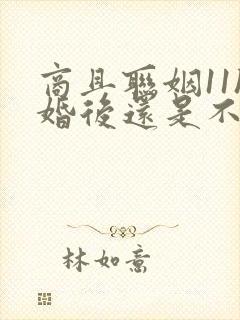 商且聯姻11
婚後還是不
林如意